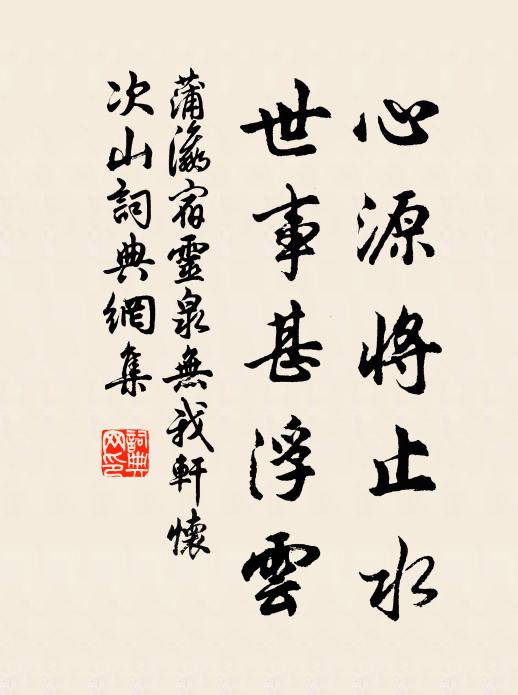 心源將止水
世事甚浮雲
蒲瀛宿靈泉無我軒懷
次山詞典網集
詞典網印